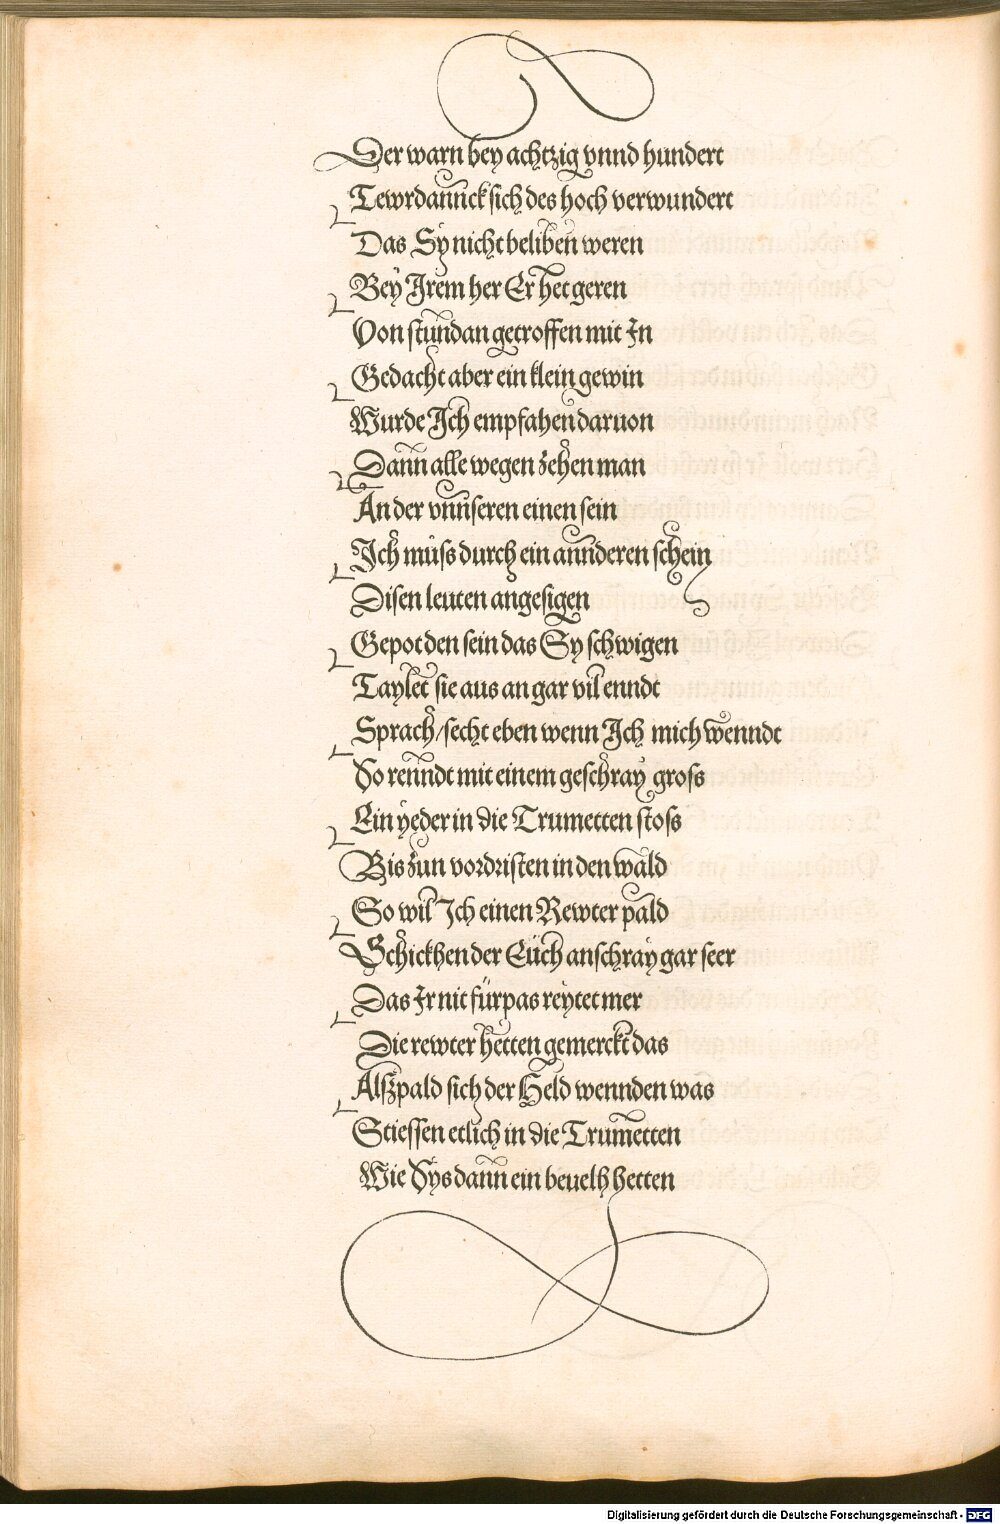 Der warn bey achtzig vnnd hundert
Tewrdannck sich des hoch verwundert
Das Sy nicht beliben weren
Bey Irem her Er het geren
Von stundan getroffen mit In
Gedacht aber ein klein gewin
Wurde Ich empfahen daruon
Dann alle wegen zehen man
An der vnnseren einen sein
Ich müss durch ein annderen schein
Disen leuten angesigen
Gepot den sein das Sy schwigen
Taylet sie aus an gar vil enndt
Sprach/secht eben wenn Ich mich wenndt
So renndt mit einem geschray gross
Ein yeder in die Trumetten stoss
Bis zun vordristen in den wald
So wil Ich einen Rewter pald
Schickhen der Eüch anschray gar seer
Das Ir nit fürpas reytet mer
Die rewter hetten gemerckt das
Alsßpald sich der Held wennden was
Stiessen etlich in die Trumetten
Wie Sys dann ein beuelh hetten
Digitalisierung gefördert durch die Deutsche Forschungsgemeinschaft - DFG